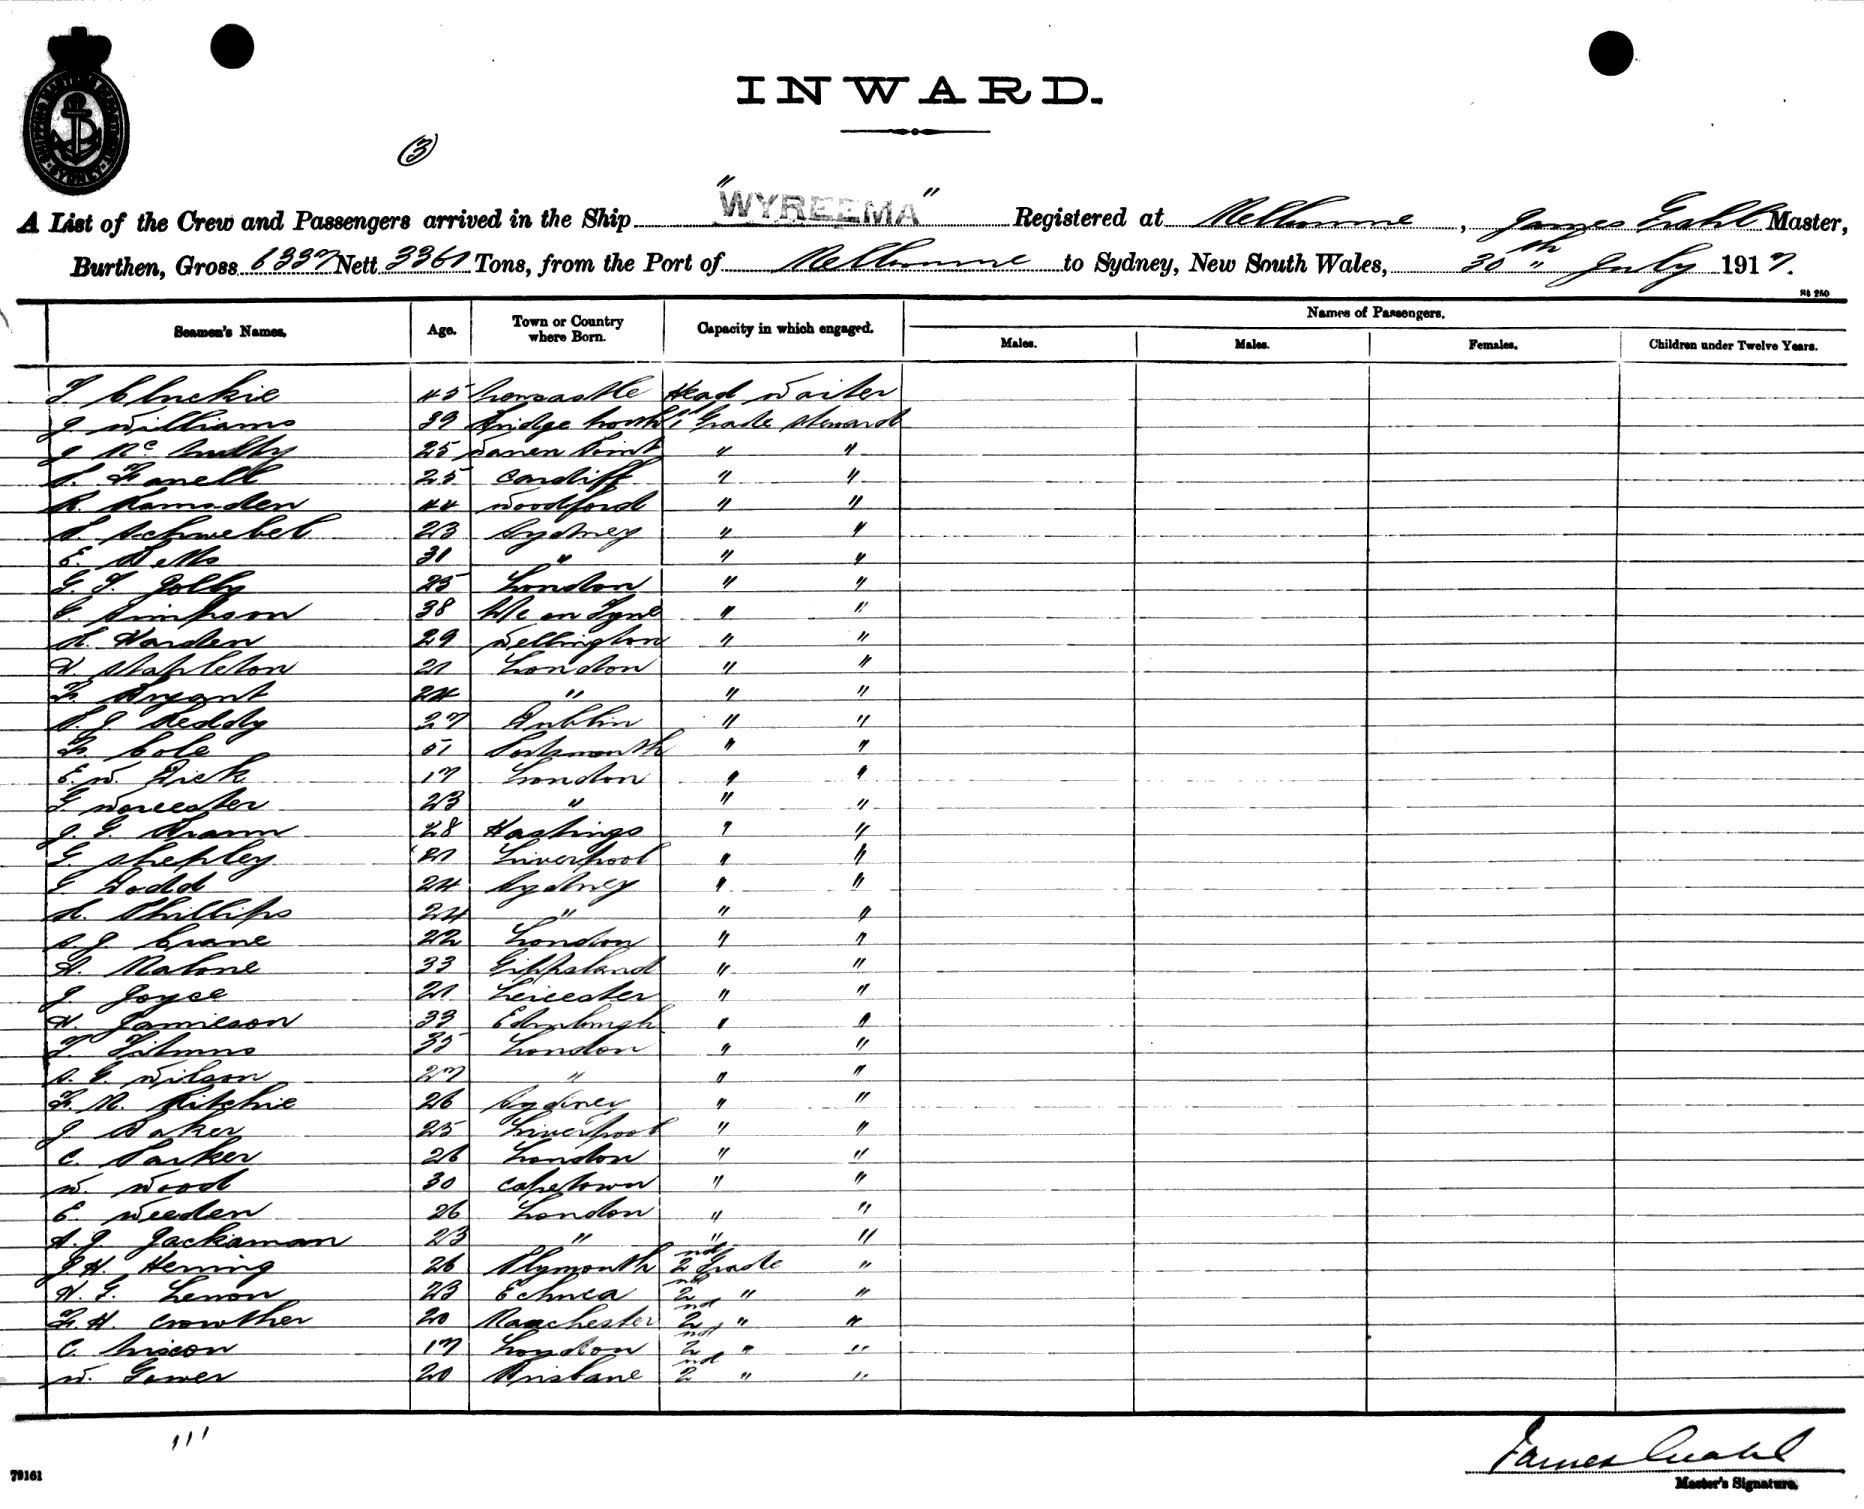 INWARD.
3
A List of the Crew and Passengers arrived in the Ship "WYREEMA" Registered at Melbourne, James Grahl Master,
Burthen, Gross 6337 Nett 3361 Tons, from the Port of Melbourne to Sydney, New South Wales, 30th July 1917.
St 250
Seamen's Names. Age. Town or Country where Born. Capacity in which engaged. Names of Passengers.
Males. Males. Females. Children under Twelve Years.
T Cluckie 45 Newcastle Head Waiter
J Williams 39 Bridge north 1st Grade Steward
J McAnulty 25 Waren Point " "
S. Farrell 25 Cardiff " "
R. Ramsden 44 Woodford " "
S. Schwebel 23 Sydney " "
E. Betts 31 " " "
G. T. Jolly 25 London " "
G. Simpson 38 N/c on Tyne " "
H. Harden 29 Wellington " "
H. Stapleton 21 London " "
F. Bryant 24 " " "
S. J. Reddy 27 Dublin " "
F. Cole 51 Portsmouth " "
E. W. Dick 17 London " "
G. Worcester 23 " " "
J. G. Brann 28 Hastings " "
G. Shepley 21 Liverpool " "
G. Dodd 24 Sydney " "
H. Phillips 24 " " "
S. J. Crane 22 London " "
A. Malone 33 Gippsland " "
J. Joyce 21 Leicester " "
H. Jamieson 33 Edinburgh " "
T. 35 London " "
S. G. Wilson 27 " " "
F. M. Ritchie 26 Sydney " "
J Baker 25 Liverpool " "
C. Parker 26 London " "
W. Wood 30 Capetown " "
E. Weeden 26 London " "
A. J. Jackaman 23 " " "
J H. Herring 26 Plymouth 2nd Grade "
H. G. Lennon 23 Echuca 2nd " "
F. H. Crowther 20 Manchester 2nd " "
C. Nixon 17 London 2nd " "
W. Gower 20 Brisbane 2nd " "
James Grahl
Master's Signature.
79161